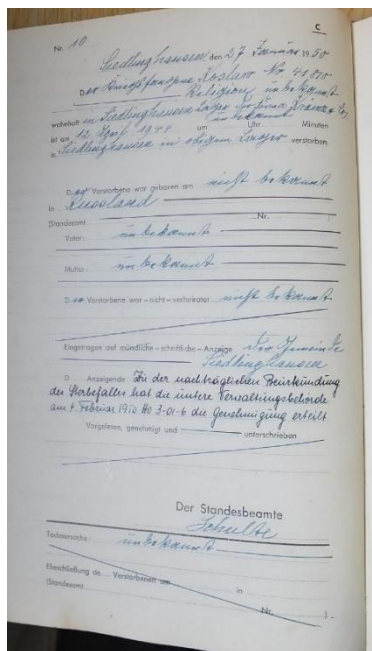 C
Nr. 10
Siedlinghausen, den 27 Januar 1950
Der Kriegsgefangene Koslow Nr 41870
Religion unbekannt
wohnhaft in Siedlinghausen Lager der Firma
ist am 12 April 1944 um unbekannt Uhr Minuten
in Siedlinghausen in obigem Lager verstorben.
Der Verstorbene war geboren am nicht bekannt
in Russland
(Standesamt Nr. )
Vater: unbekannt
Mutter: unbekannt
Der Verstorbene war – nicht – verheiratet nicht bekannt
Eingetragen auf mündliche – schriftliche – Anzeige der Gemeinde
Siedlinghausen
D Anzeigende Zu der nachträglichen Beurkundung
des Sterbefalles hat die untere Verwaltungsbehörde
am 4. Februar 1950 die Genehmigung erteilt
Vorgelesen, genehmigt und unterschrieben
Der Standesbeamte
Schulte
Todesursache: unbekannt
Eheschließung de Verstorbenen am in
(Standesamt Nr. ).